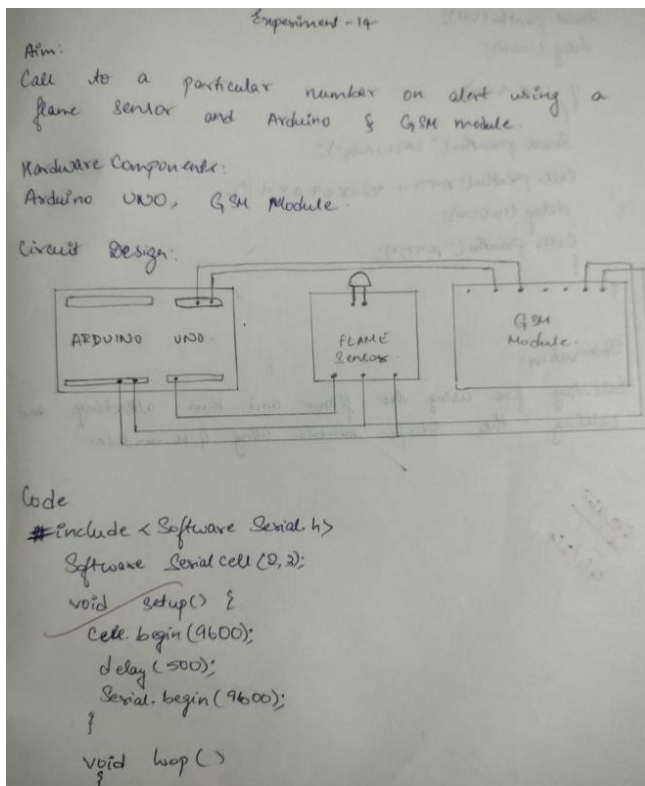 Experiment - 14
Aim:
Call to a particular number on alert using a
flame sensor and Arduino & GSM module.
Hardware Components:
Arduino UNO, GSM Module.
Circuit Design:
ARDUINO UNO.
FLAME
Sensor.
GSM
Module.
Code
#include < Software Serial.h>
Software Serial cell (2,3);
void setup() {
Cell.begin (9600);
delay (500);
Serial.begin (9600);
}
void loop ()
{